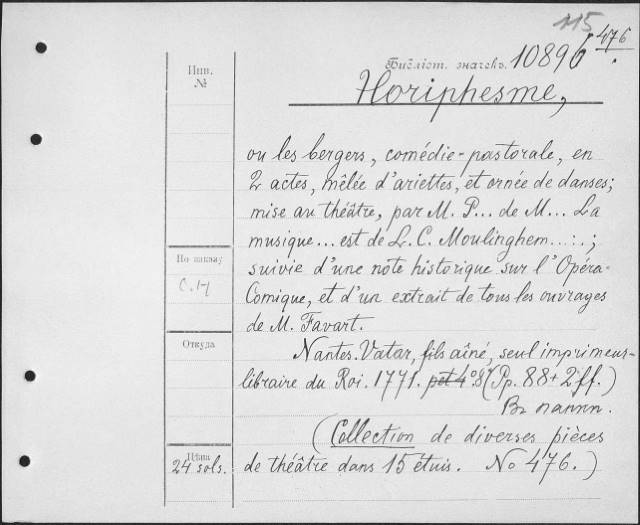 115
476
Библіот. значекъ. 10896
Horiphesme,
Инв.
№
ou les bergers, comédie-pastorale, en
2 actes, mêlée d'ariettes, et ornée de danses;
mise au théâtre, par M. P... de M... La
musique... est de L. C. Moulinghem...:.;
По заказу
С.Н
suivie d'une note historique sur l'Opéra-
Comique, et d'un extrait de tous les ouvrages
de M. Favart.
Откуда
Nantes. Vatar, fils aîné, seul imprimeur-
libraire du Roi. 1771. pet 4º. 8º (Pp. 88 + 2 ff.)
Въ папкѣ.
(Collection de diverses pièces
Цѣна
24 sols.
de théâtre dans 15 étuis. No 476.)